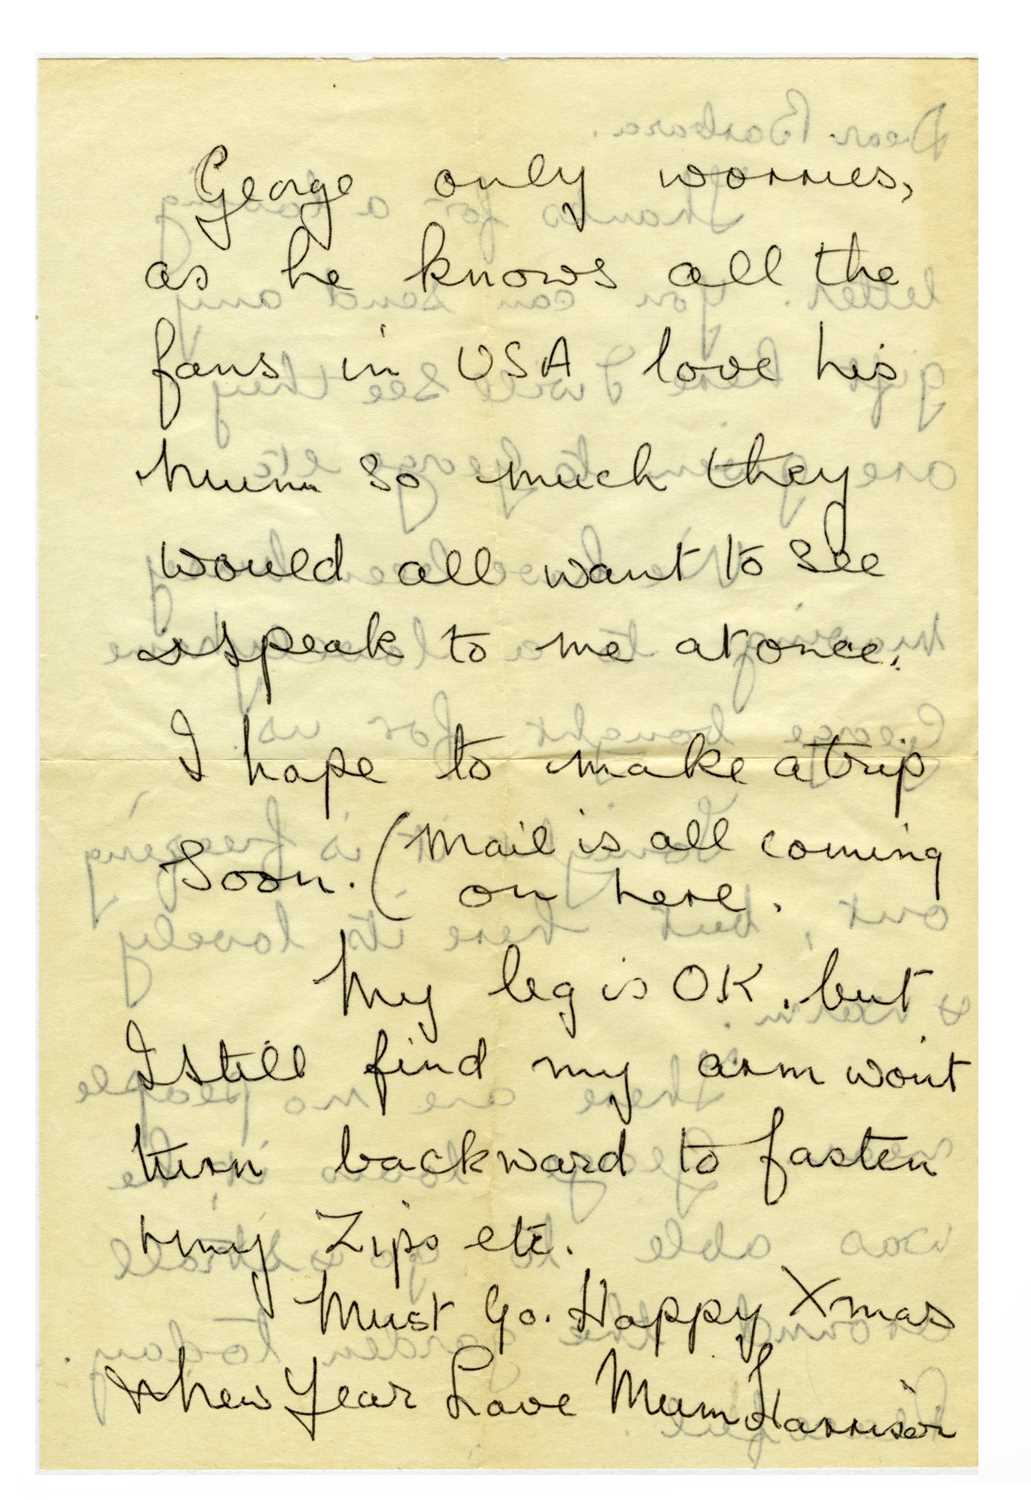 George only worries,
as he knows all the
fans in USA love his
Mum so much they
would all want to see
& speak to me at once.
I hope to make a trip
Soon. (Mail is all coming
on here.
My leg is OK, but
I still find my arm won't
turn backward to fasten
my Zips etc.
Must Go. Happy Xmas
& New Year Love Mum Harrison